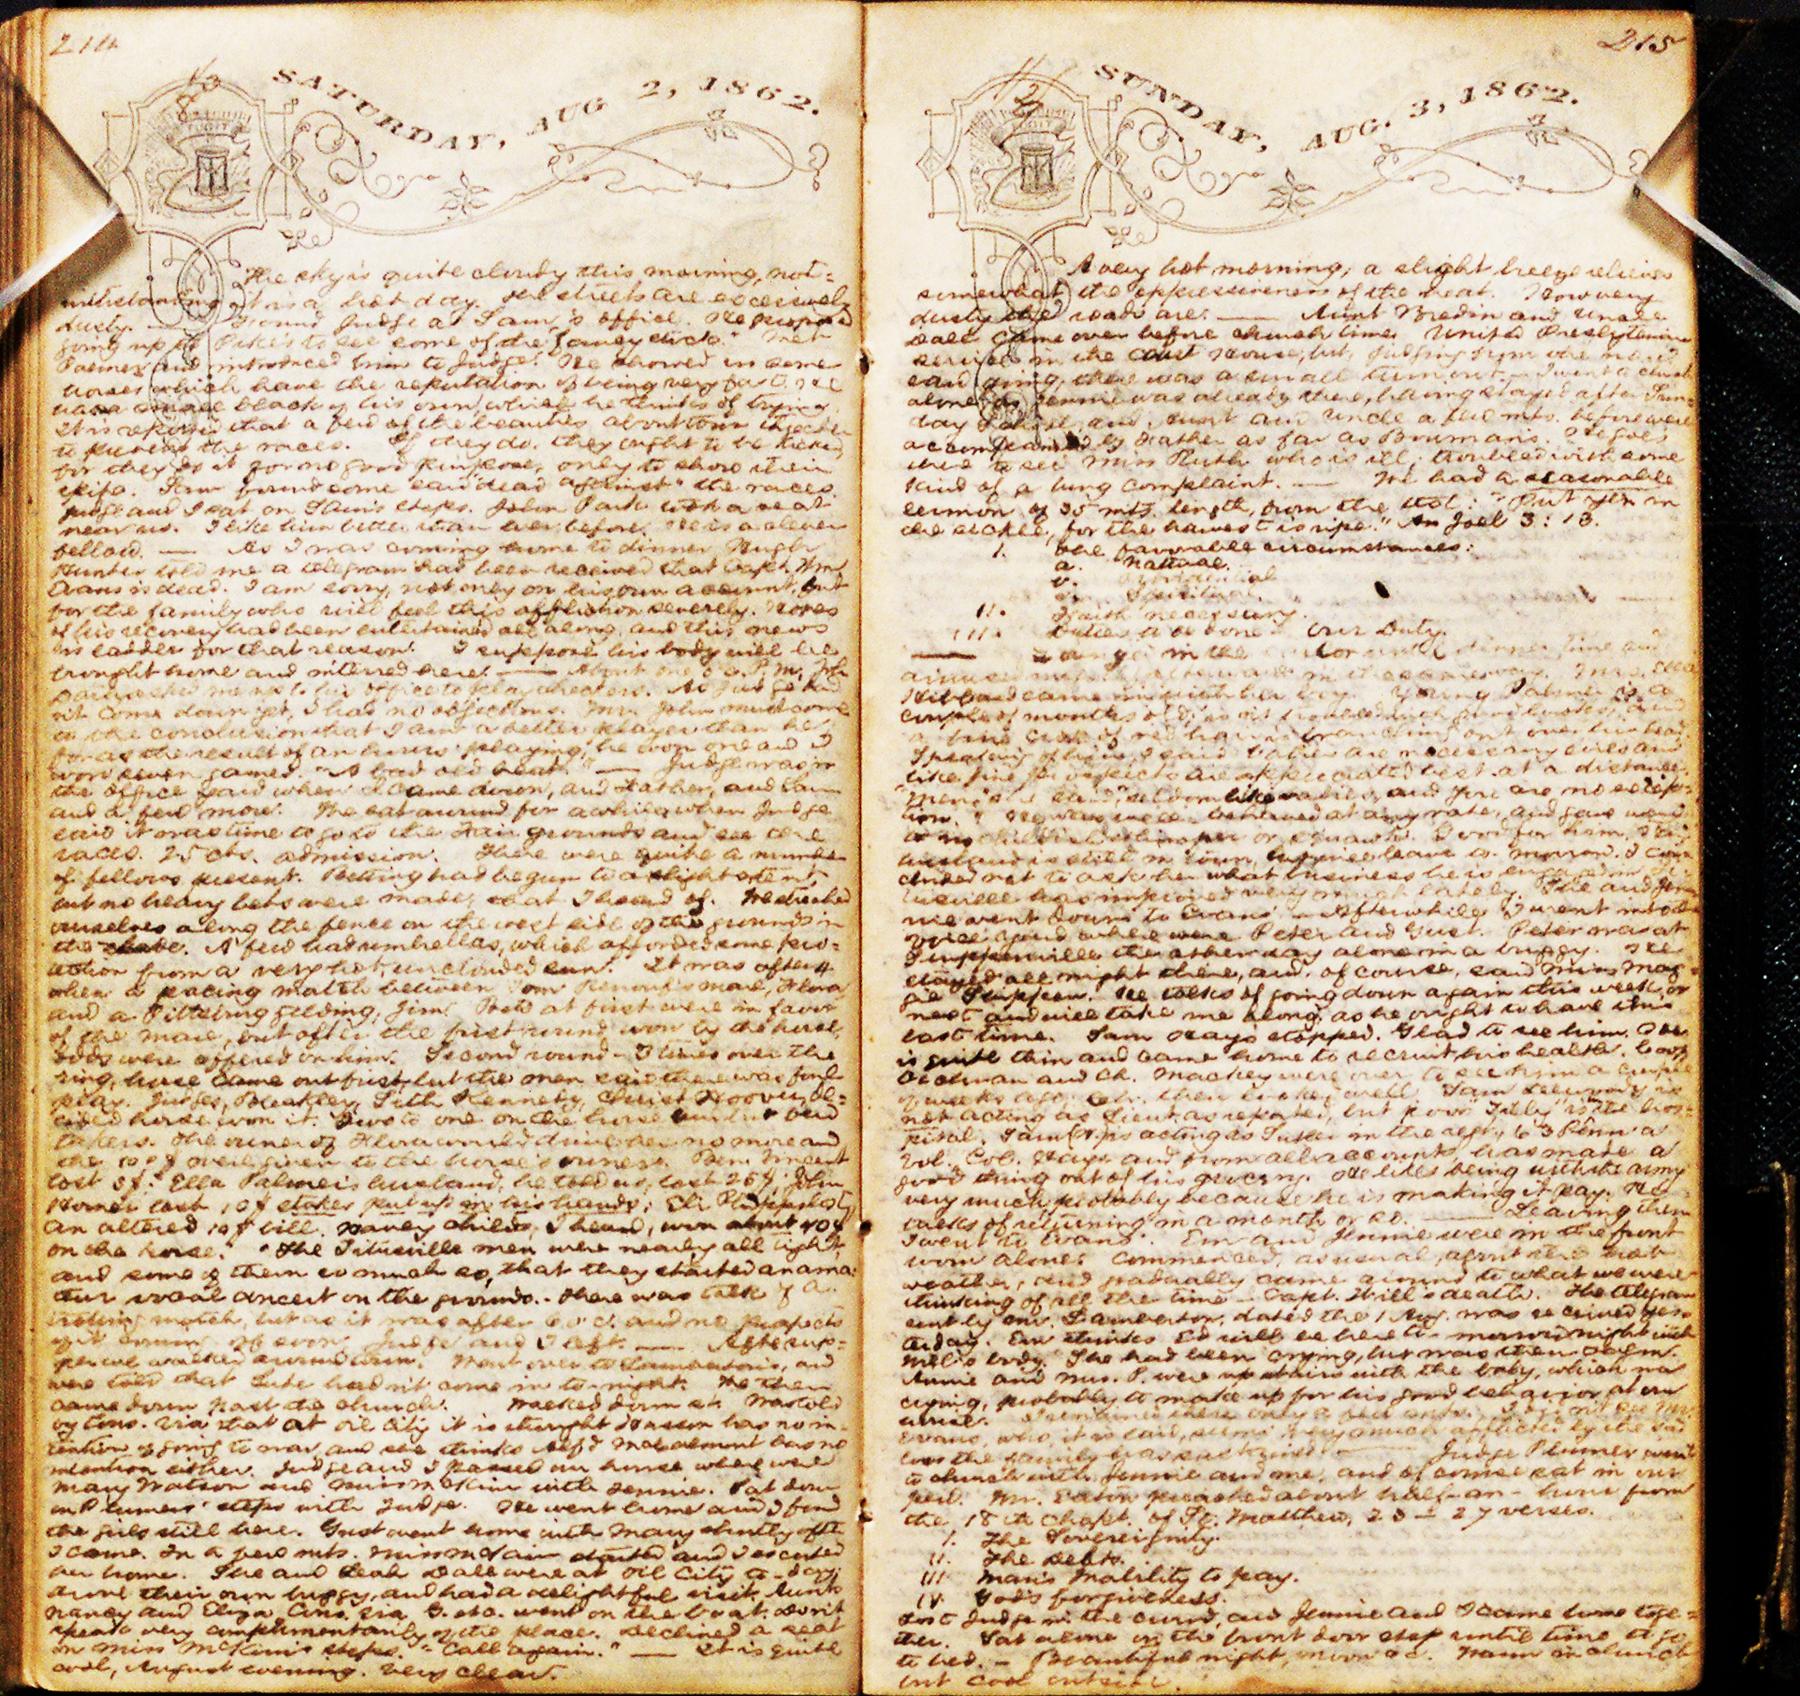 214
SATURDAY, AUG 2, 1862.
The sky is quite cloudy this morning, not=
withstanding it is a hot day. The streets are excessively
dusty. — Found Judge at Sam's office. He proposed
going up to Pike's to see some of the "fancy stock." Met
Palmer and introduced him to Judge. He showed us some
horses which have the reputation of being very fast. He
has a small black of his own which he thinks of trying.
It is reported that a few of the beauties about town intend
to the races. If they do, they ought to be kicked
for they do it for no good purpose, only to show their
spite. Sam found some "dead against" the races.
Judge and I sat on Sam's steps. John Park took a seat
near us. I like him better than ever before. He is a clever
fellow. — As I was coming home to dinner Hugh
Hunter told me a telegram had been received that Capt. Wm
Evans is dead. I am sorry, not only on his own account, but
for the family who will feel this affliction severely. Hopes
of his recovery had been entertained all along, and this news
is sadder for that reason. I suppose his body will be
brought home and interred here. — About one o'c. P.M. John
asked me up to his office to play checkers. As Judge had
n't come down yet, I had no objections. Mr. John must come
to the conclusion that I am a better player than he
for as the result of an hour's playing, he won one and I
won seven games. "A bad old beat." — Judge was in
the office yard when I came down, and Father, and Sam
and a few more. We sat around for a while when Judge
said it was time to go to the Fair grounds and see the
races. 25 cts. admission. There were quite a number
of fellows present. Betting had begun to a slight extent,
but no heavy bets were made, that I heard of. We stretched
ourselves along the fence on the west side of the grounds in
the shade. A few had umbrellas, which afforded some pro=
tection from a very hot, unclouded sun. It was after 4
when a pacing match between Tom mare, Flora
and a Pittsburg gelding, Jim. Bets at first were in favor
of the mare, but after the first round won by the horse,
odds were offered on him. Second round — 3 times over the
ring, horse came out first, but the men said there was foul
play. Judges, Bleakley, Seth Kennedy, Christ Hoover, de=
cided horse won it. Two to one on the horse
takers. The owner of Flora would drive her no more and
the 10$ were given to the horse's owners. Ben. Vincent
lost 5$. Ella Palmer's husband, he told us, lost 25$. John
Horner lost 10$ stakes put up in his hands; Eli
an altered 10$ bill. Harvey Childs, I heard, won about 40$
on the horse. The Titusville men were nearly all tight
and some of them so much so, that they started an ama=
teur vocal concert on the grounds. — There was talk of a
trotting match, but as it was after 6 o'c. and no prospects
of it coming off soon, Judge and I left. — After sup=
per we walked around town. Went over to Lamberton's, and
were told that Lute hadn't come in to-night. We then
came down past the church. Walked down st. Was told
by Cous. Via that at Oil City it is thought has no in=
tention of going to war, and she thinks has no
intention either. Judge and I passed our house where were
Mary Watson and Miss McKim with Jennie. Sat down
on Plumer's steps with Judge. He went home and I found
the girls still here. Gust went home with Mary shortly after
I came. In a few mts. Miss McKim started and I escorted
her home. She and Leah Dale were at Oil City to-day;
drove their own buggy, and had a delightful visit. Aunts
Nancy and Eliza, Cous. Via, G. etc. went on the boat. Don't
speak very complimentarily of the place. Declined a seat
on Miss McKim's steps. "Call again." — It is quite
cool, August evening. Very clear.
215
SUNDAY, AUG. 3, 1862.
A very hot morning; a slight breeze relieves
somewhat the oppressiveness of the heat. How very
dusty the roads are. — Aunt Bredin and Uncle
Dale came over before church time. United Presbyterian
service in the Court House, but, judging from the no. I
saw going, there was a small turn out. — I went to church
alone as Jennie was already there, having stayed after Sun=
day School, and Aunt and Uncle a few mts. before were
accompanied by Father as far as Bowman's. He goes
there to see Miss Ruth who is ill; troubled with some
kind of a lung complaint. — We had a seasonable
sermon of 35 mts. length, from the text: "Put ye in
the sickle, for the harvest is ripe." In Joel 3:13.
I. The favorable circumstances:
a. Natural.
b. Providential
c. Spiritual.
II. Faith necessary.
III. Duties to be done — Our Duty.
— in the until dinner time and
amused myself afterward in the same way. Mrs. Ella
came in with her boy. Young Palmer is a
couple of months old;
a of red hair branching out over his head.
Speaking of babies, I said babies are necessary evils and
like fine prospects are appreciated best at a distance.
"Men," she said, "seldom like babies, and you are no excep=
tion." He was well behaved at any rate, and gave word
to no or squawk. Good for him. Her
husband is still in town, but will leave to-morrow. I con=
cluded not to ask her what business he is engaged in. Ti=
tusville has improved very much lately. She and Jen=
nie went down to Evans'. — Afterwhile I went into the
office yard where were Peter and Gust. Peter was at
Shippenville the other day alone in a buggy. He
stayed all night there, and, of course, saw Miss Mag=
gie Shippen. He talks of going down again this week or
next and will take me along, as he ought to have this
last time. Sam Hays stopped. Glad to see him. He
is quite thin and came home to recruit his health. Capt
and Ch. Mackey were over to see him a couple
of weeks ago. Both then looked well. Sam is
not acting as Lieut. as reported, but poor Tilly is in the hos=
pital. Sam is acting as Sutler in the regt., 63 Penn'a
Vol. Col. Hays and from all accounts, has made a
good thing out of his grocery. He likes being with the army
very much, probably because he is making it pay. He
talks of returning in a month or so. — Leaving them
I went to Evans'. Em and Jennie were in the front
room alone. Commenced, as usual, about the hot
weather, and gradually came around to what we were
thinking of all the time — Capt. Will's death. The telegram
sent by Mr. Lamberton, dated the 1 Aug. was received yes=
terday. Em thinks Ed will be here to-morrow night with
Will's body. She had been crying, but was then calm.
Annie and Mrs. P. were up stairs with the baby, which was
crying, probably to make up for his good behavior at our
house. I remained there only a few mts. I did not see Mr
Evans, who, it is said, seems very much afflicted by the sad
loss the family has sustained. — Judge Plumer went
to church with Jennie and me, and of course sat in our
pew. Mr. Eaton preached about half-an-hour from
the 18th Chapt. of St. Matthew, 23 – 27 verses.
I. The Sovereignty.
II. The debts.
III. Man's inability to pay.
IV. God's forgiveness.
Lost Judge in the crowd, and Jennie and I came home toge=
ther. Sat alone on the front door step until time to go
to bed. — Beautiful night, moon &c. Warm in church
but cool outside.